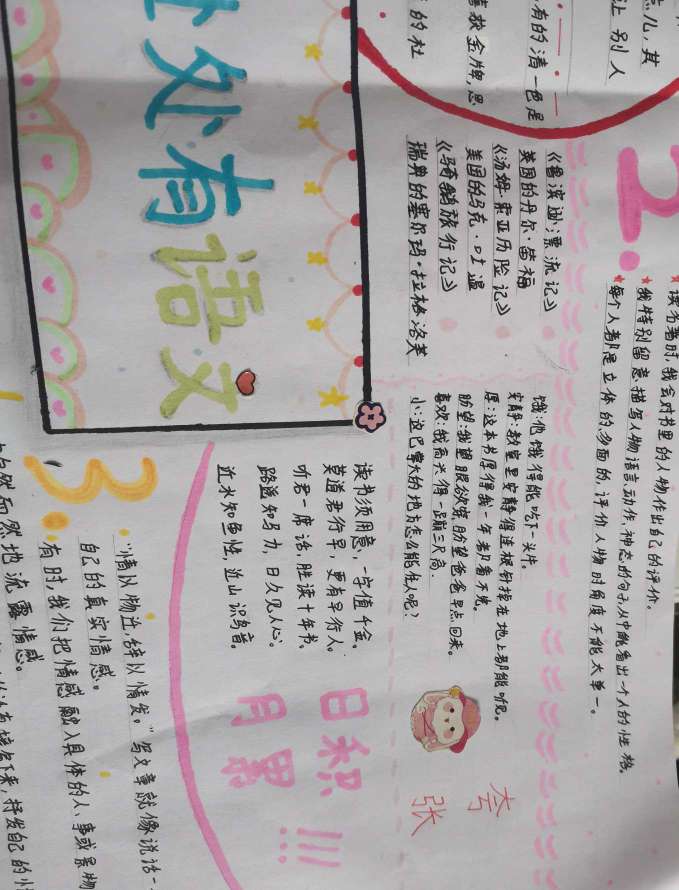 点儿，其
让别人
有的清一色是
的杜
《鲁滨逊漂流记》
英国的丹尔·笛福
《汤姆·索亚历险记》
美国的马克·吐温
《骑鹅旅行记》
瑞典的塞尔玛·拉格洛芙
2.
读名著时，我会对书里的人物作出自己的评价。
我特别留意描写人物语言、动作、神态的句子，从中能看出一个人的性格。
每个人都是立体的、多面的，评价人物时角度不能太单一。
饿：他饿得能吃下一头牛。
安静：教室里安静得连根针掉在地上都能听见。
厚：这本书厚得我一年都看不完。
盼望：我望眼欲穿，盼望爸爸早点回来。
喜欢：我高兴得一蹦三尺高。
小：这巴掌大的地方怎么能住人呢？
夸
张
处处有
语文
读书须用意，一字值千金。
莫道君行早，更有早行人。
听君一席话，胜读十年书。
路遥知马力，日久见人心。
近水知鱼性，近山识鸟音。
日积
月累
!!!
3.
“情以物迁，辞以情发。”写文章就像说话一
自己的真实情感。
有时，我们把情感融入具体的人、事或景物
自然而然地流露情感。
接着下来，抒发自己的情